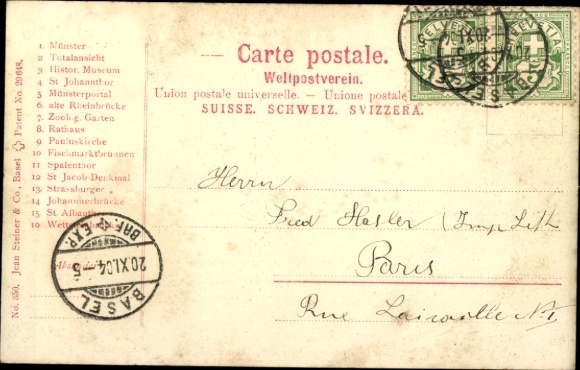 1. Münster
2 Totalansicht
3 Histor. Museum
4 St Johannthor
5 Münsterportal
6 alte Rheinbrücke
7 Zoolog. Garten
8 Rathaus
9 Pauluskirche
10 Fischmarktbrunnen
11 Spalenthor
12 St Jacob-Denkmal
13 Strassburger
14 Johanniterbrücke
15 St Alban
16
No. 350. Jean Steiner & Co., Basel Patent No. 29648.
Carte postale.
Weltpostverein.
Union postale universelle. — Unione postale
SUISSE. SCHWEIZ. SVIZZERA.
HELVETIA
HELVETIA
BASEL
Herrn
Fred Hasler (Imp. Lith
Paris
Rue
BRF. EXP.
20.XI.04-5
BASEL